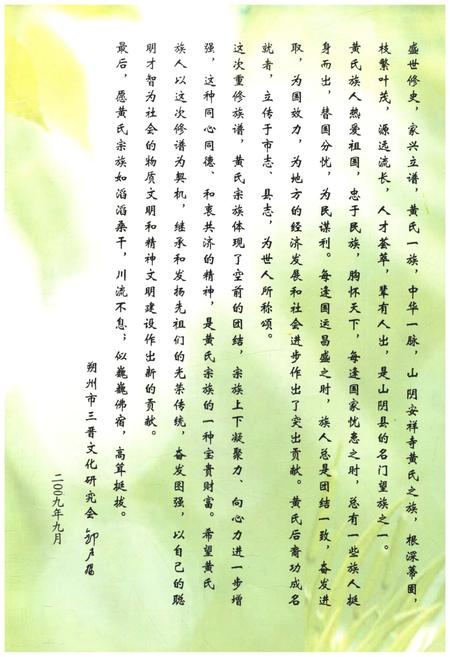 盛世修史，家兴立谱，黄氏一族，中华一脉，山阴安祥寺黄氏之族，根深蒂固，
枝繁叶茂，源远流长，人才荟萃，辈有人出，是山阴县的名门望族之一。
黄氏族人热爱祖国，忠于民族，胸怀天下，每逢国家忧患之时，总有一些族人挺
身而出，替国分忧，为民谋利。每逢国运昌盛之时，族人总是团结一致，奋发进
取，为国效力，为地方的经济发展和社会进步作出了突出贡献。黄氏后裔功成名
就者，立传于市志、县志，为世人所称颂。
这次重修族谱，黄氏宗族体现了空前的团结，宗族上下凝聚力、向心力进一步增
强，这种同心同德、和衷共济的精神，是黄氏宗族的一种宝贵财富。希望黄氏
族人以这次修谱为契机，继承和发扬先祖们的光荣传统，奋发图强，以自己的聪
明才智为社会的物质文明和精神文明建设作出新的贡献。
最后，愿黄氏宗族如滔滔桑干，川流不息；似巍巍佛宿，高耸挺拔。
朔州市三晋文化研究会
二00九年九月